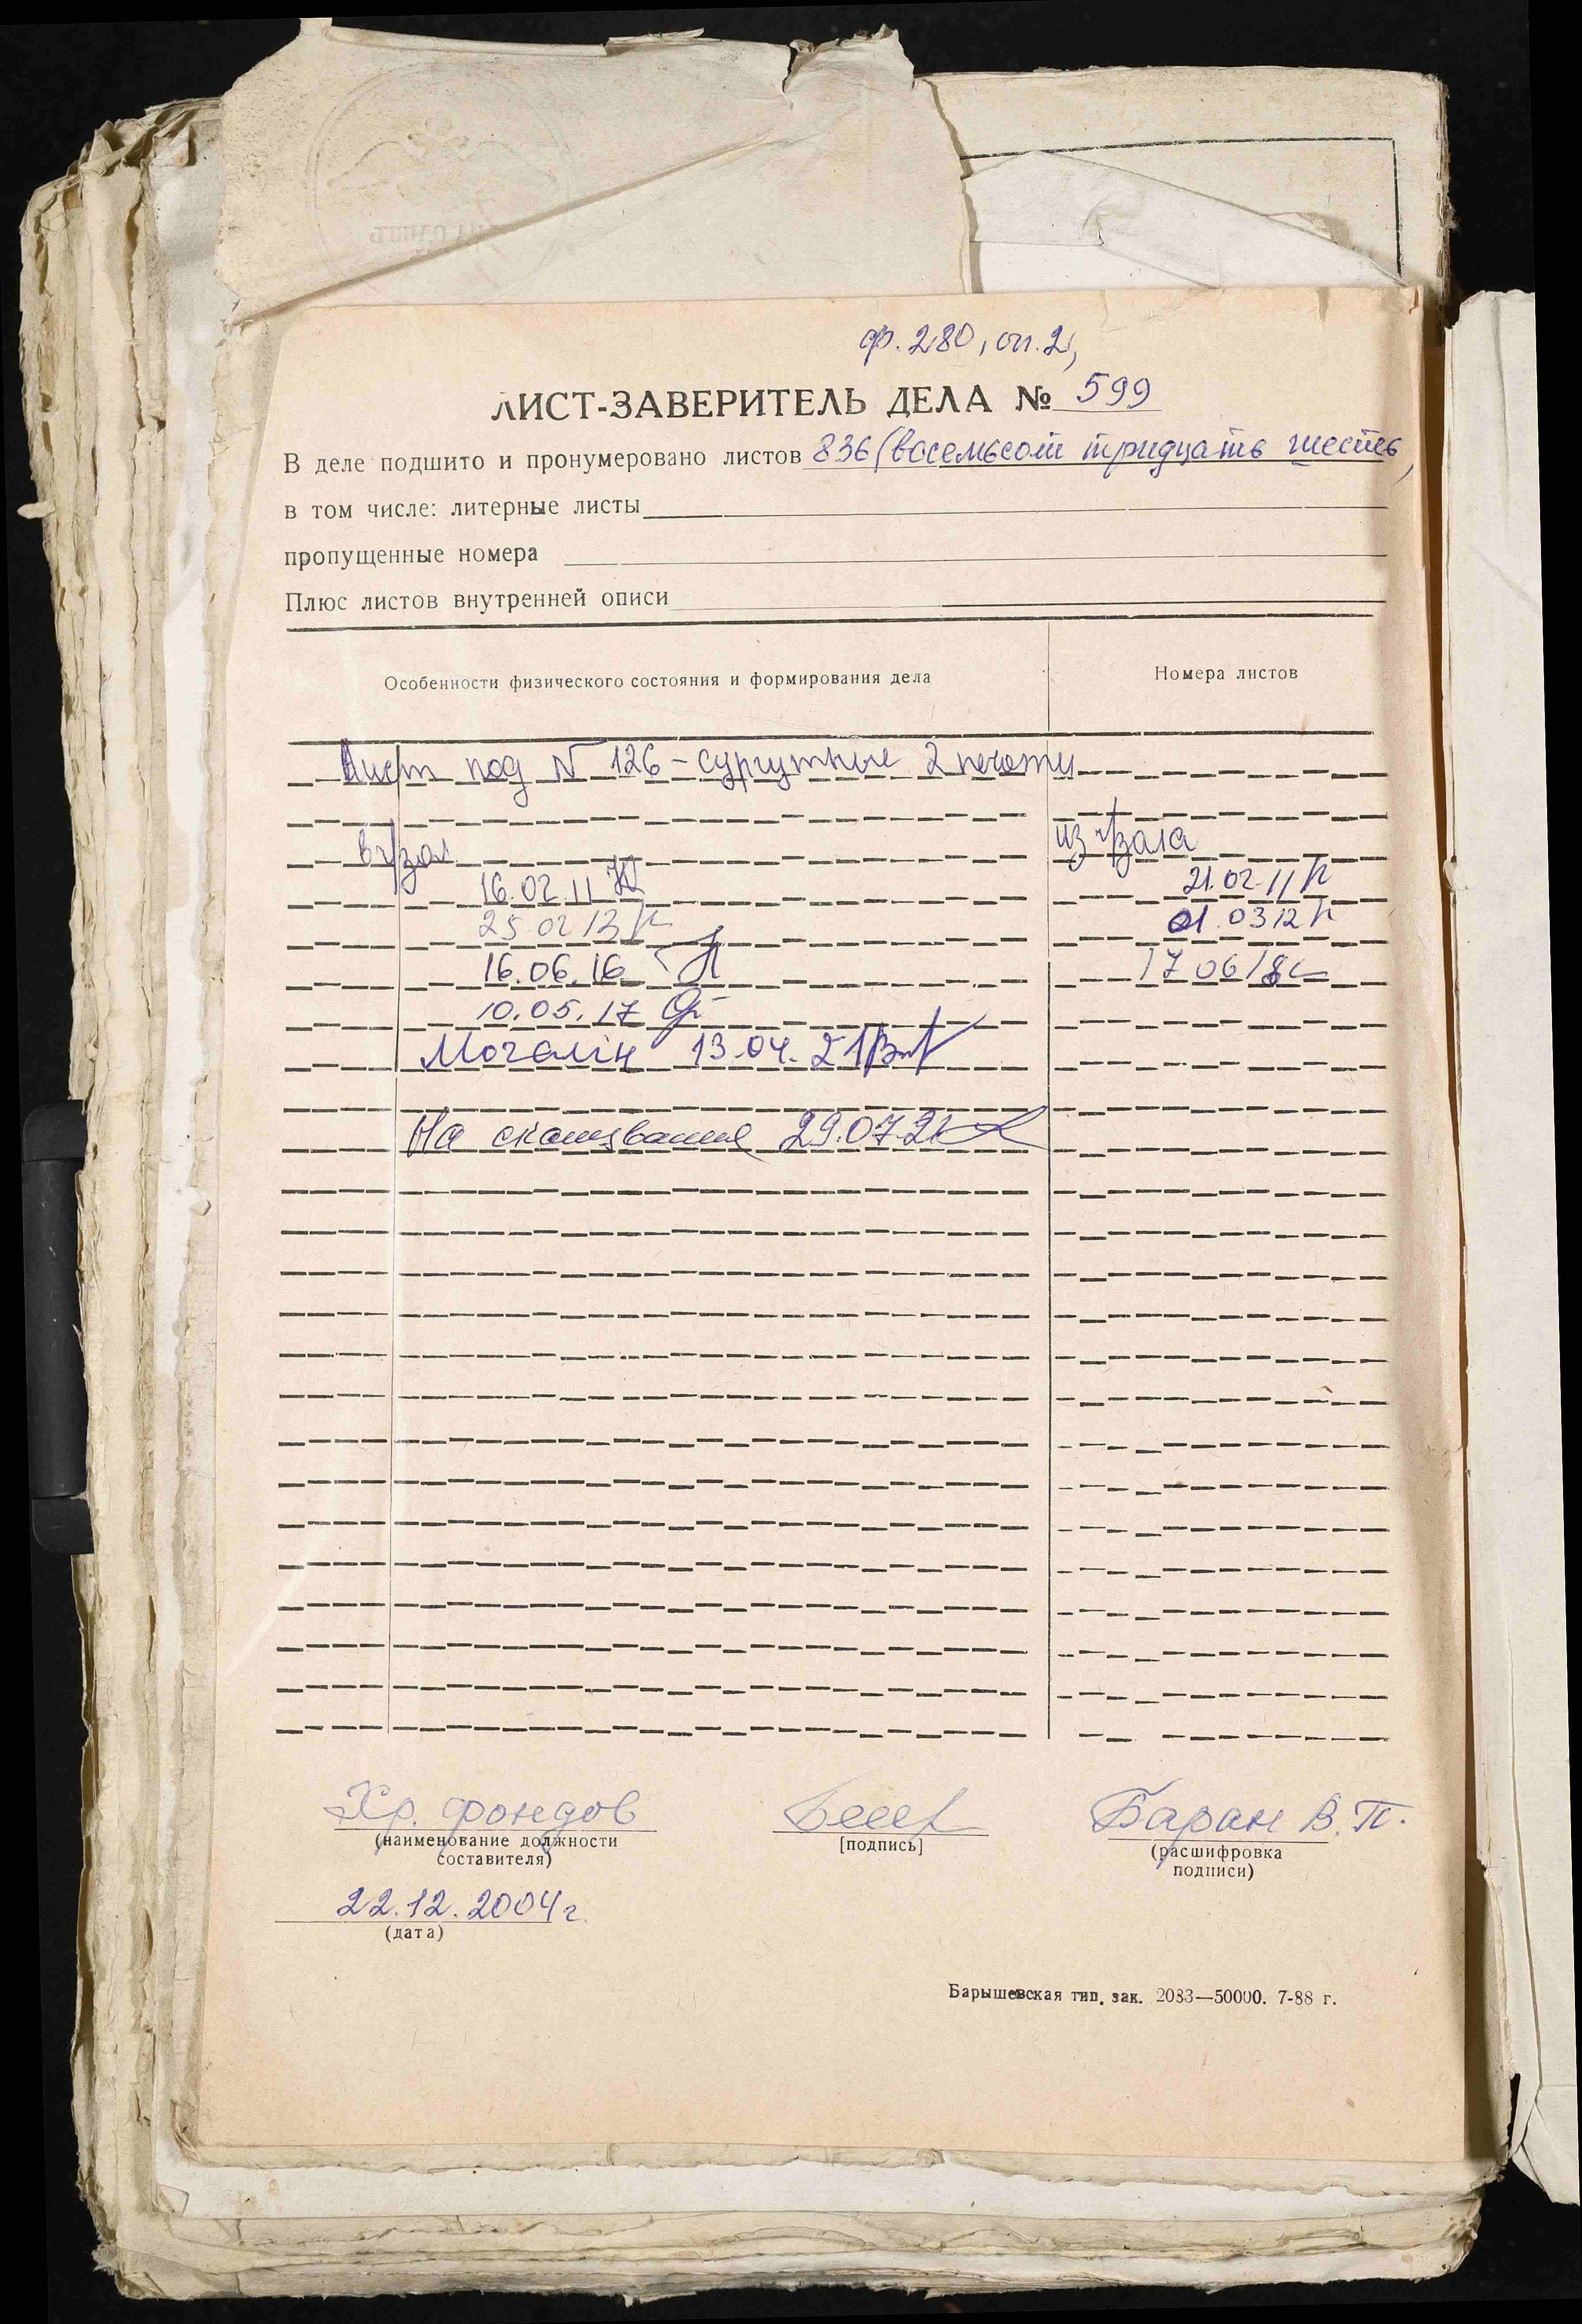 ф. 280, оп. 2,
ЛИСТ-ЗАВЕРИТЕЛЬ ДЕЛА № 599
В деле подшито и пронумеровано листов 836 (восемьсот тридцать шесть)
в том числе: литерные листы
пропущенные номера
Плюс листов внутренней описи
Особенности физического состояния и формирования дела Номера листов
Лист под N 126 - сургутные 2 печати
в ч/зал из ч/зала
16.02.11 21.02.11
25 02 13 01.03 12
16.06.16 17 06 18
10.05.17
13.04.21
На сканування 29.07.21
Хр. фондов Баран В. П.
(наименование должности составителя) [подпись] (расшифровка подписи)
22.12.2004 г.
(дата)
Барышевская тип. зак. 2083—50000. 7-88 г.